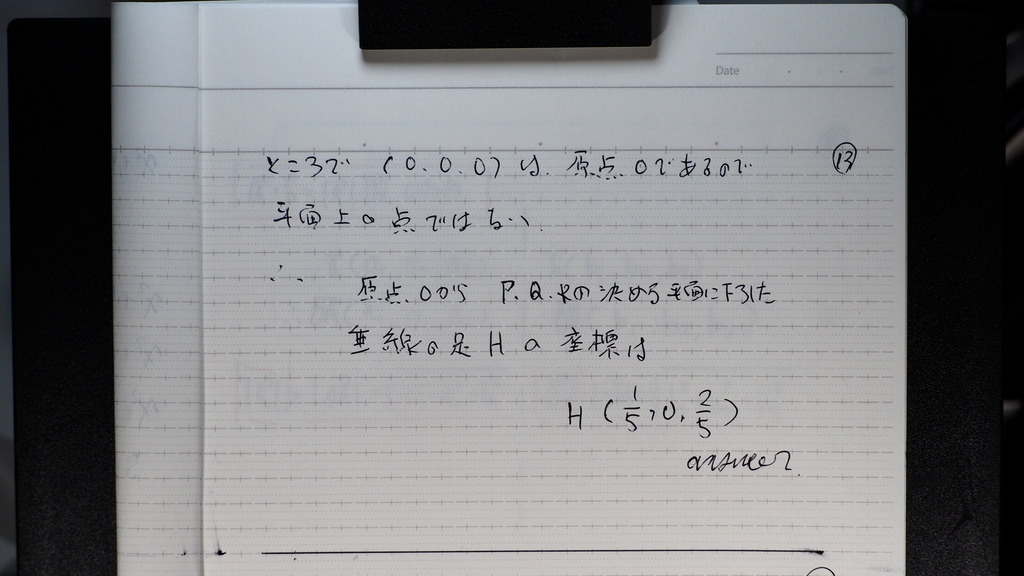 Date
ところで (0.0.0)は.原点.Oであるので ⑬
平面上の点ではない.
∴ 原点.Oから P.Q.Rの決める平面に下ろした
垂線の足Hの座標は
H(1/5,0,2/5)
answer.